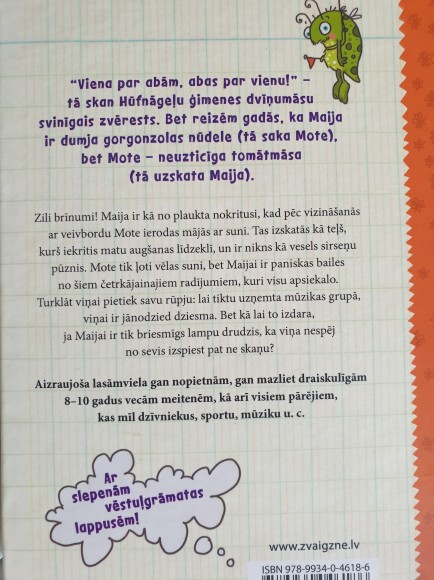 "Viena par abām, abas par vienu!" –
tā skan Hūfnāgeļu ģimenes dvīņumāsu
svinīgais zvērests. Bet reizēm gadās, ka Maija
ir dumja gorgonzolas nūdele (tā saka Mote),
bet Mote – neuzticīga tomātmāsa
(tā uzskata Maija).
Zili brīnumi! Maija ir kā no plaukta nokritusi, kad pēc vizināšanās
ar veivbordu Mote ierodas mājās ar suni. Tas izskatās kā teļš,
kurš iekritis matu augšanas līdzeklī, un ir nikns kā vesels sirseņu
pūznis. Mote tik ļoti vēlas suni, bet Maijai ir paniskas bailes
no šiem četrkājainajiem radījumiem, kuri visu apsiekalo.
Turklāt viņai pietiek savu rūpju: lai tiktu uzņemta mūzikas grupā,
viņai ir jānodzied dziesma. Bet kā lai to izdara,
ja Maijai ir tik briesmīgs lampu drudzis, ka viņa nespēj
no sevis izspiest pat ne skaņu?
Aizraujoša lasāmviela gan nopietnām, gan mazliet draiskulīgām
8–10 gadus vecām meitenēm, kā arī visiem pārējiem,
kas mīl dzīvniekus, sportu, mūziku u. c.
Ar
slepenām
vēstuļgrāmatas
lappusēm!
www.zvaigzne.lv
ISBN 978-9934-0-4618-6